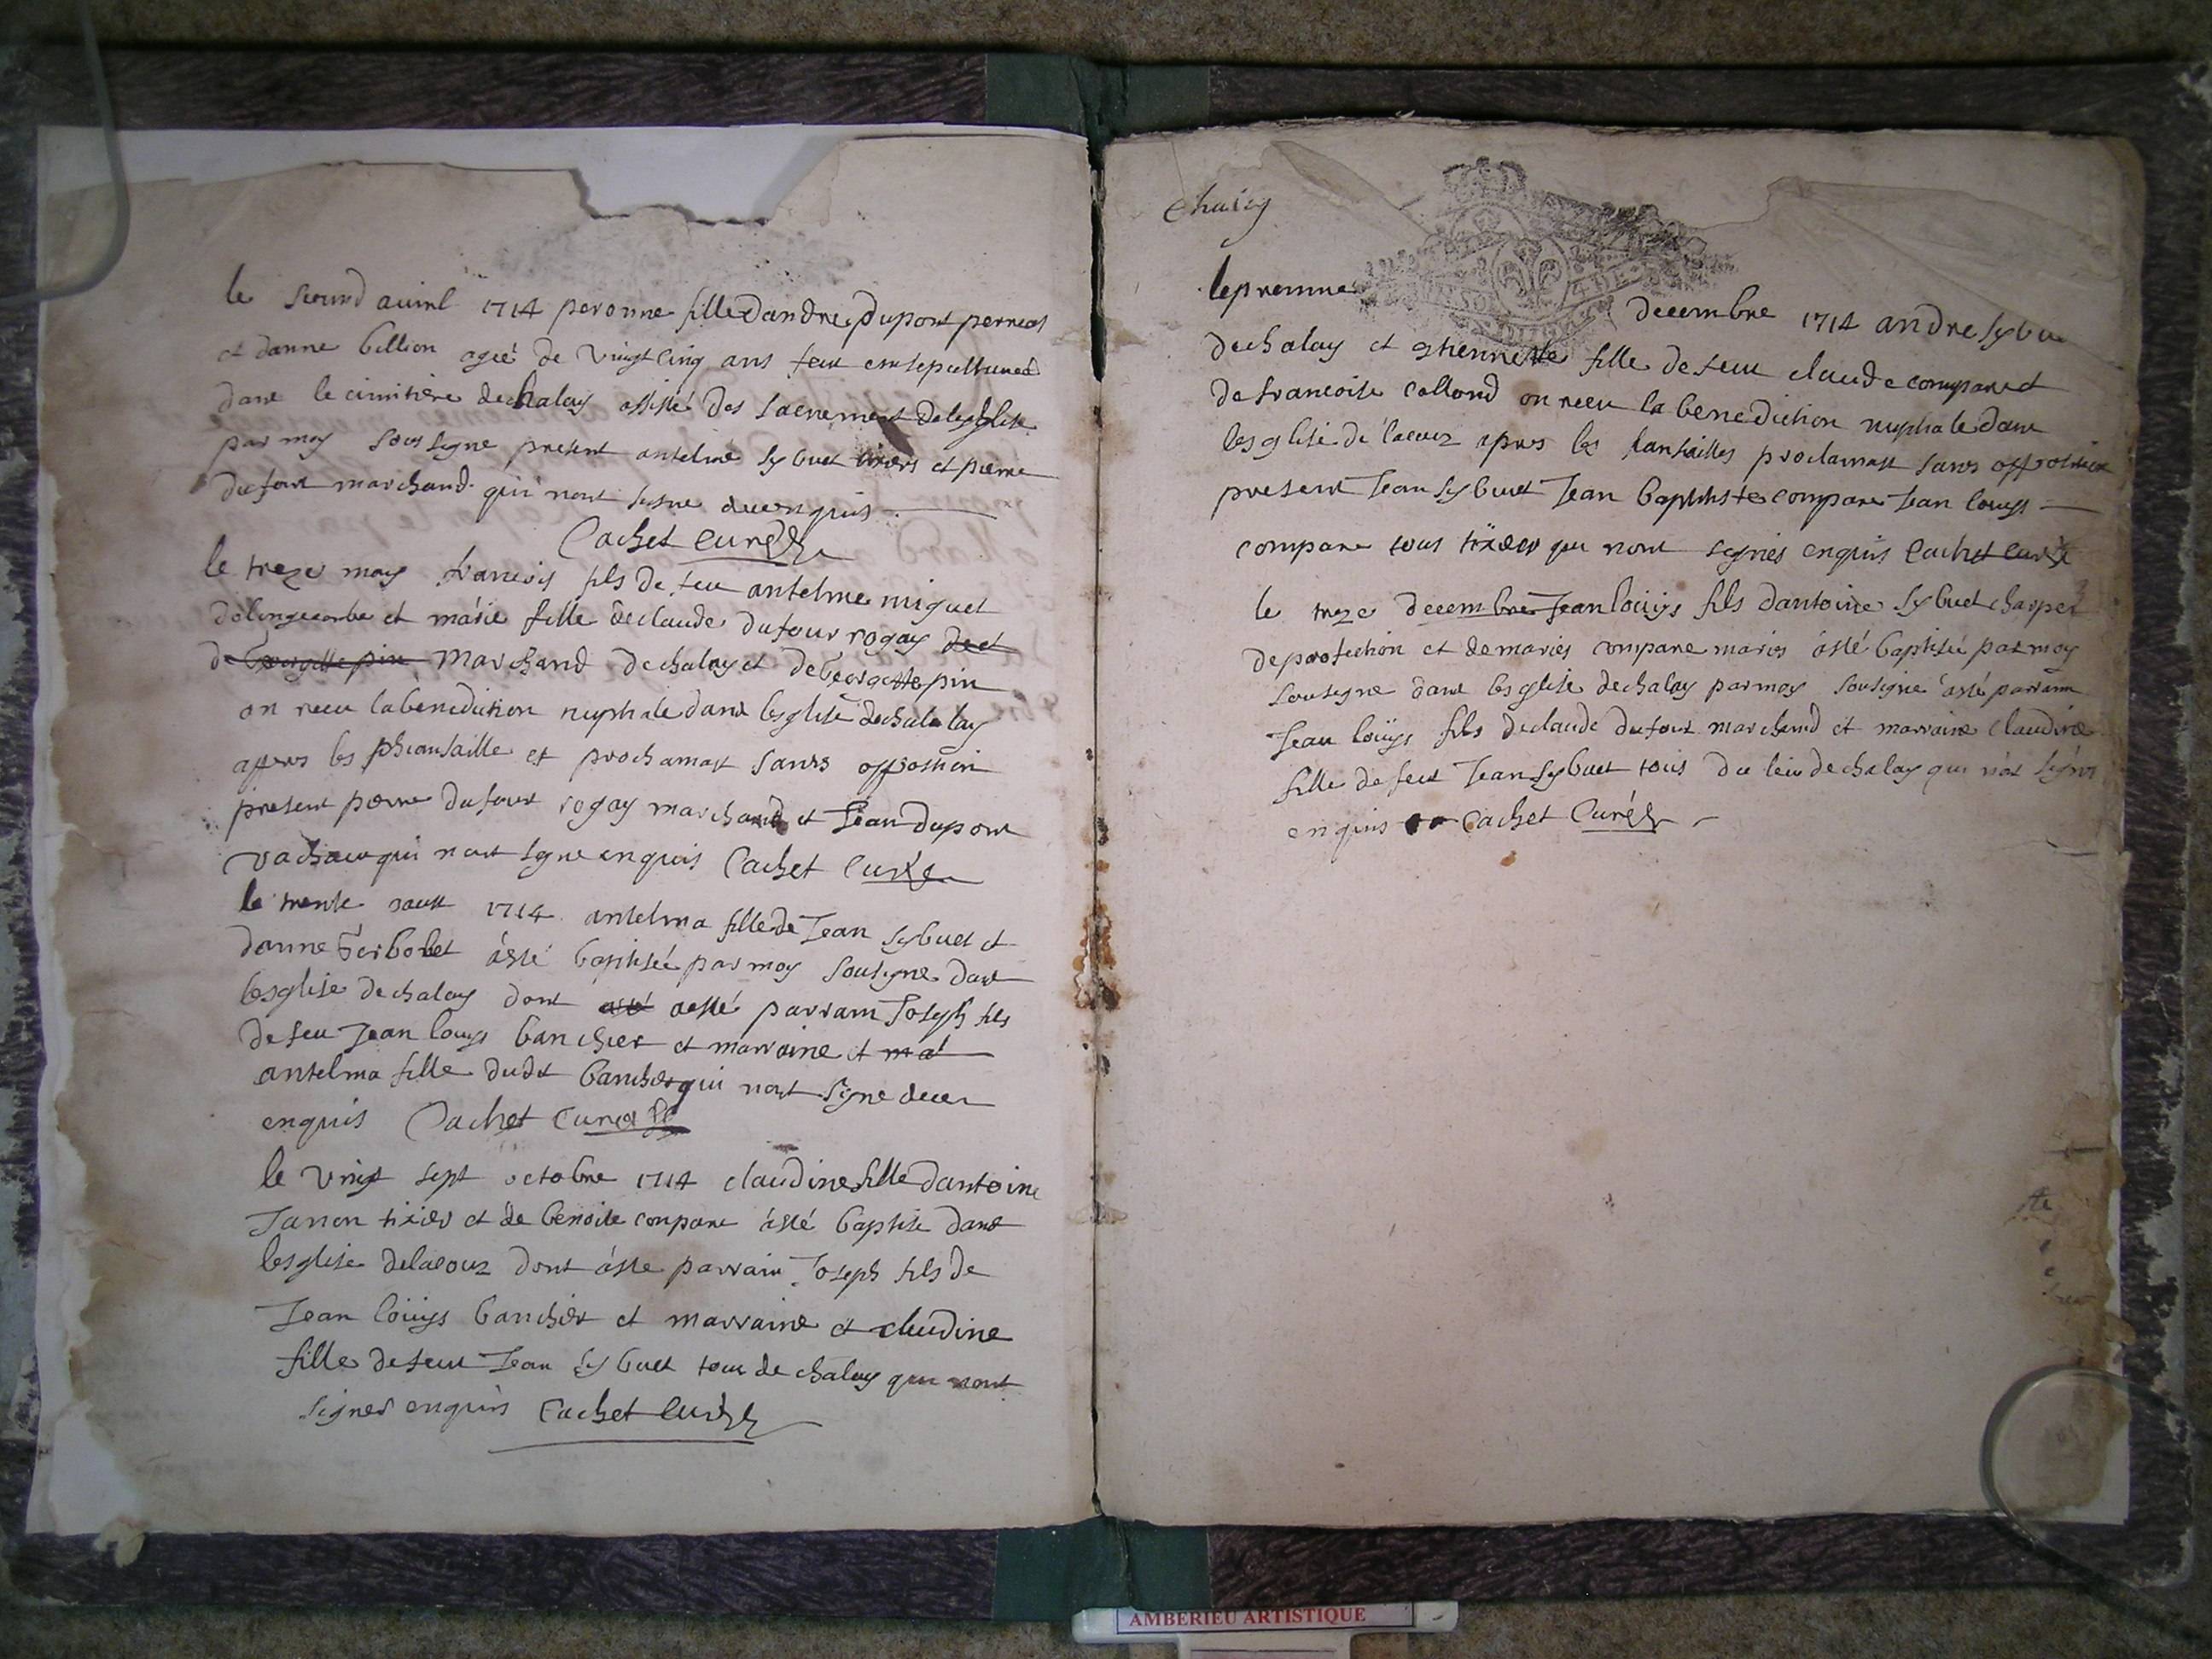 le second aviril 1714 peronne fille dandre dupont perreat
et danne billion ageé de vingt cinq ans feut ensepultureé
dans le cimitière de chaley assisté des sacrement de lesglise
par moy sousigne present antelme sybuet tixiers et pierre
dufour marchand qui nont signe de ce enquis
Cachet curé
le treze may francois fils de feu antelme miguet
dolongecombe et marie fille de claude dufour rogay
de georgette pin marchand de chaley et de georgette pin
on receu la benediction nuptiale dans lesglise de chalelay
apres les phiansaille et prochamast sanrs opposition
present pierre dufour rogay marchand et Jean dupont
vachat qui nont signe enquis Cachet Curé
le trente aoust 1714 antelma fille de Jean sybuet et
danne berbolet àesté baptiseé par moy sousigne dans
lesglise de chaley dont aesté parrain Joseph fils
de feu Jean louys banchet et marraine et
antelma fille dudit banchet qui nont signe de ce
enquis Cachet Curé
le vingt sept octobre 1714 claudine fille dantoine
Janon tixier et de benoite conpare àesté baptise dans
lesglise delacouz dont àeste parrain Joseph fils de
Jean loüys banchet et marraine et cludine
fille de feu Jean sybuet tous de chaley qui nont
signes enquis Cachet Curé
Chaley
le premier decembre 1714 andre sybue
de chaley et ethiennette fille de feu claude compare et
de francoise collond on receu la benediction nuptiale dans
lesglise de lacouz apres les fiansailles proclamast sans opposition
present Jean sybuet Jean baptiste compare Jean louys
compare tous tixier qui nont signés enquis Cachet Curé
le treze decembre Jean loüys fils dantoine sybuet charpet
de profection et de maries compare maries àesté baptisé par moy
sousigne dans lesglise de chaley par moy sousigne àesté parrain
Jean loüys fils de claude dufour marchand et marraine claudine
fille de feu Jean sybuet tous du leiu de chaley qui nont signes
enquis Cachet Curé
AMBERIEU ARTISTIQUE